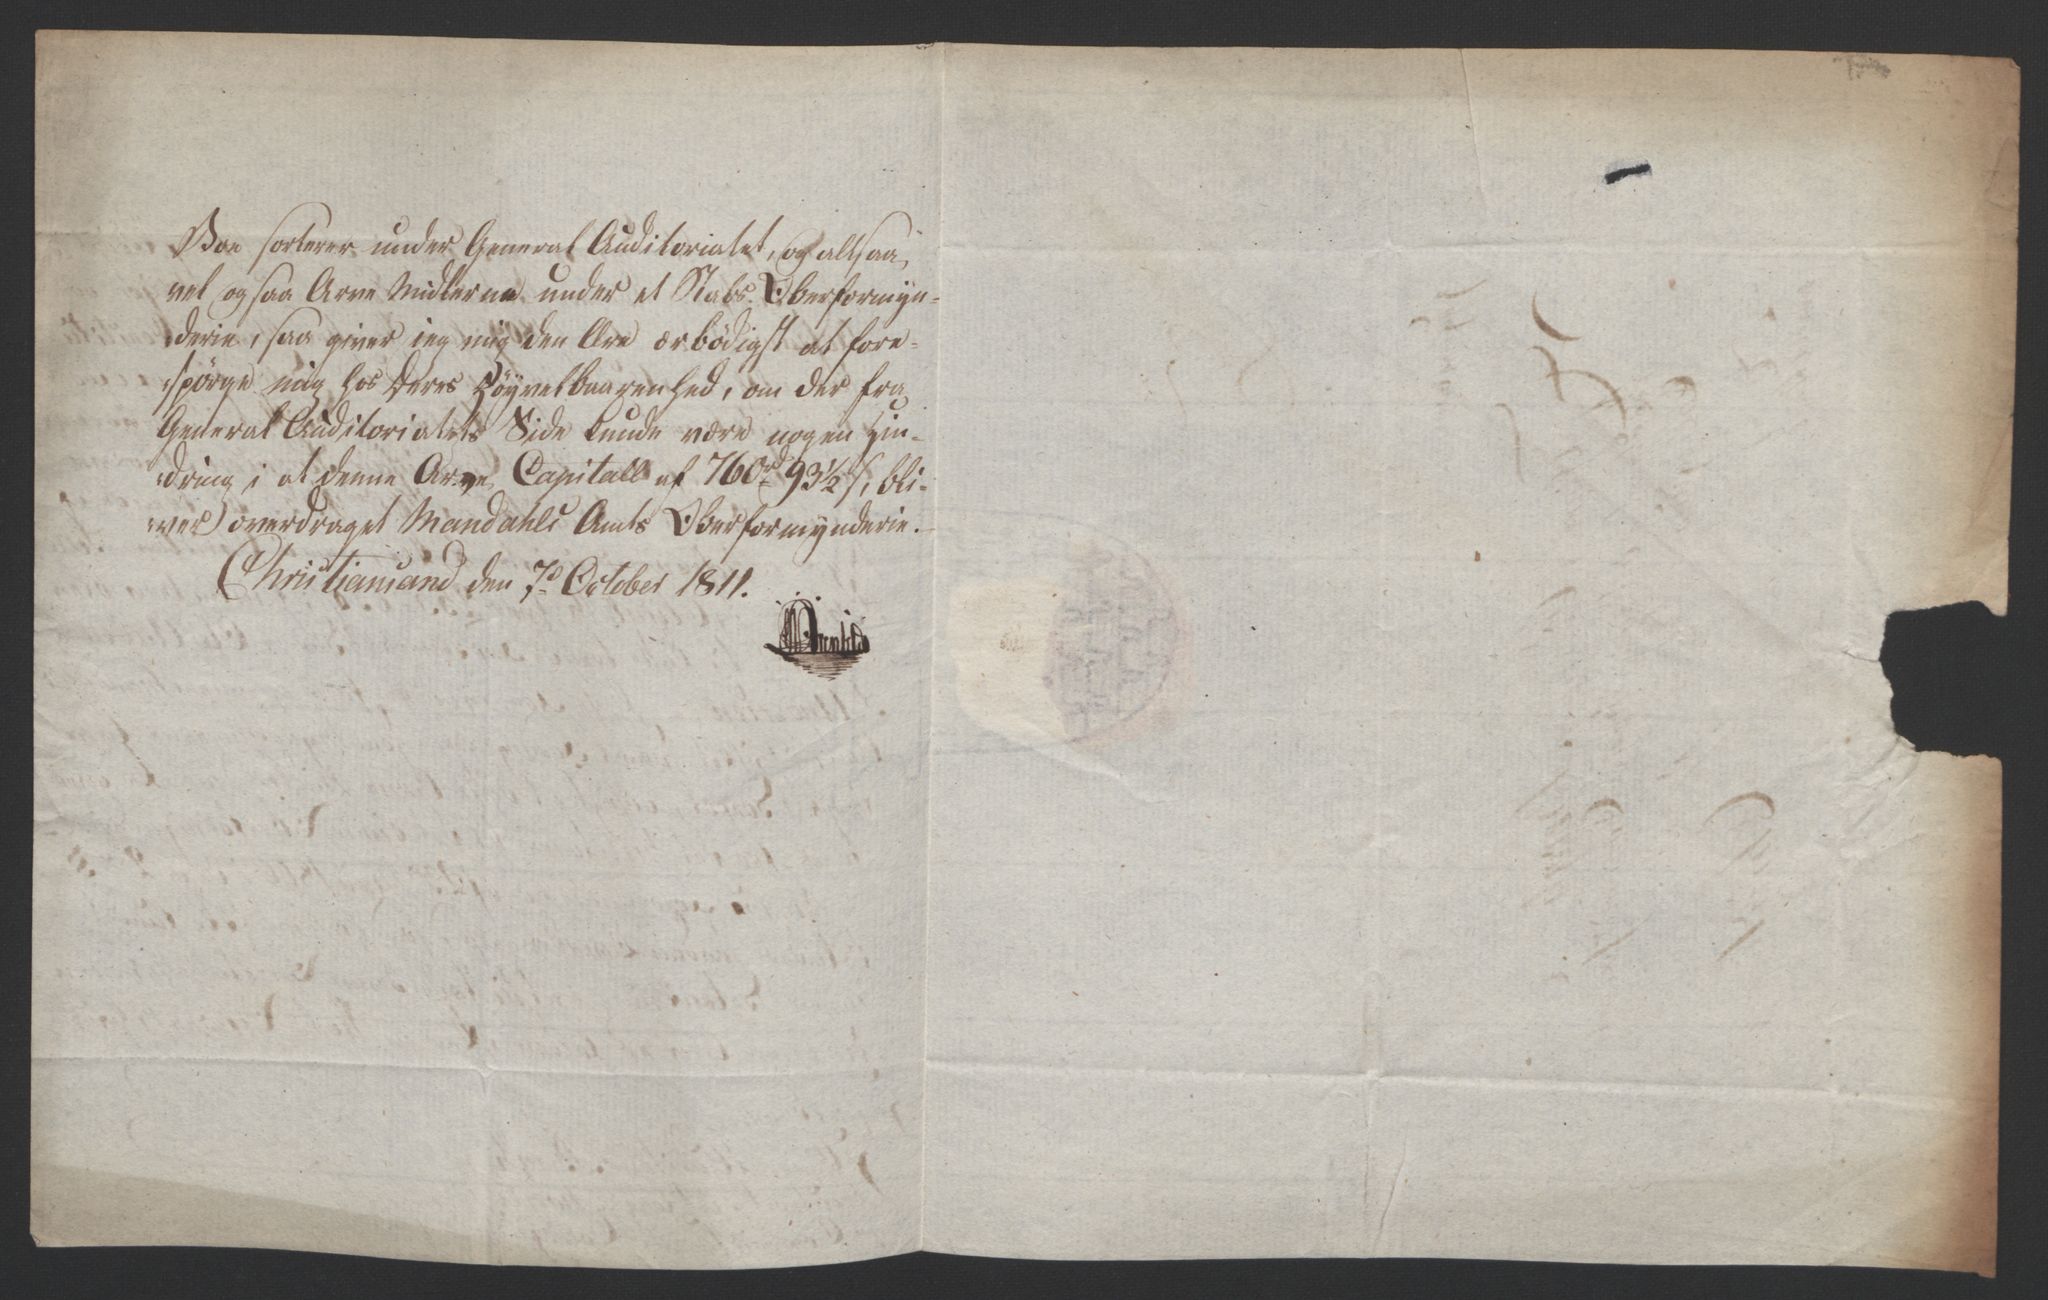 Boe sorterer under General Auditoriatet, og altsaa
vel ogsaa Arve Midlerne under et Stabs Oberformyn-
derie, saa giver jeg mig den Ære ærbödigst at fore-
spörge mig hos Deres Höyvelbaarenhed, om der fra
General Auditoriatets Side kunde være nogen Hin-
dring i at denne Arve Capitall af 760rd 93½ s, bli-
ver overdraget Mandahls Amts Oberformynderie.
Christiansand den 7d October 1811.